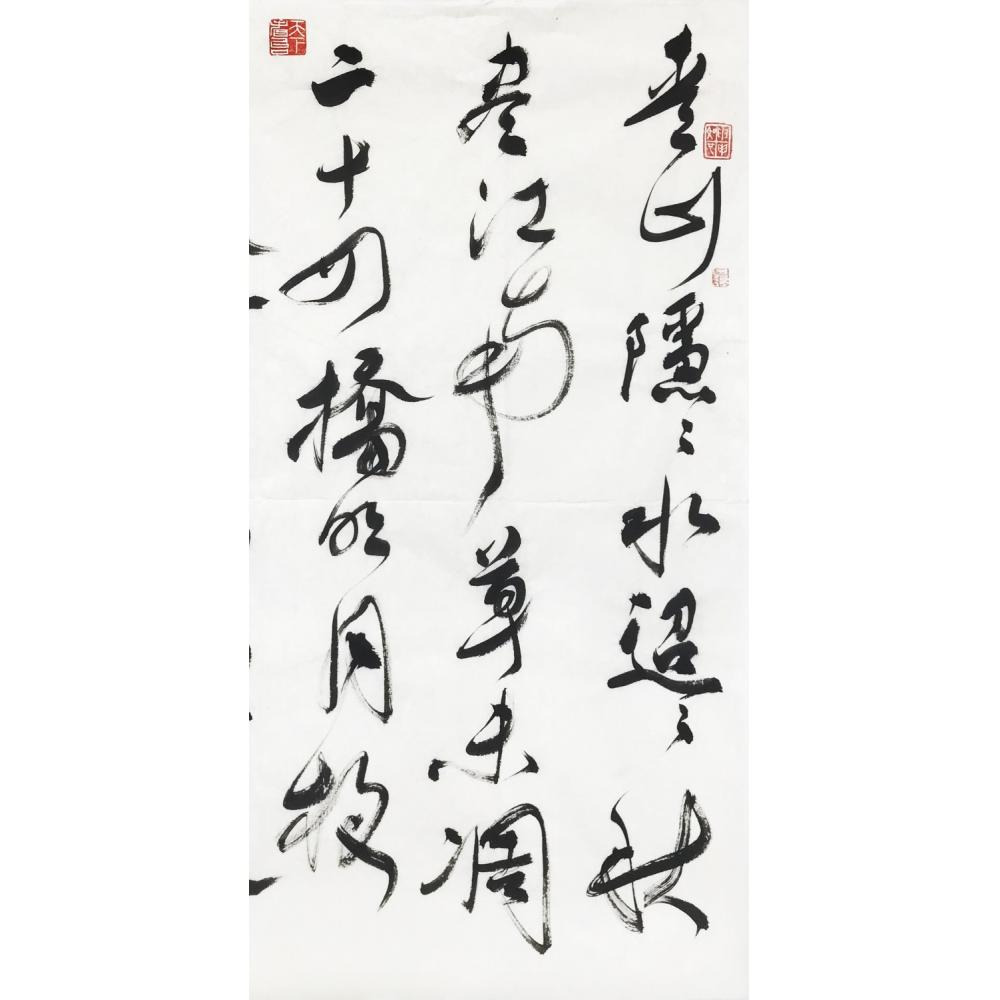 青山隱々水迢々秋
盡江南草未凋
二十四橋明月夜